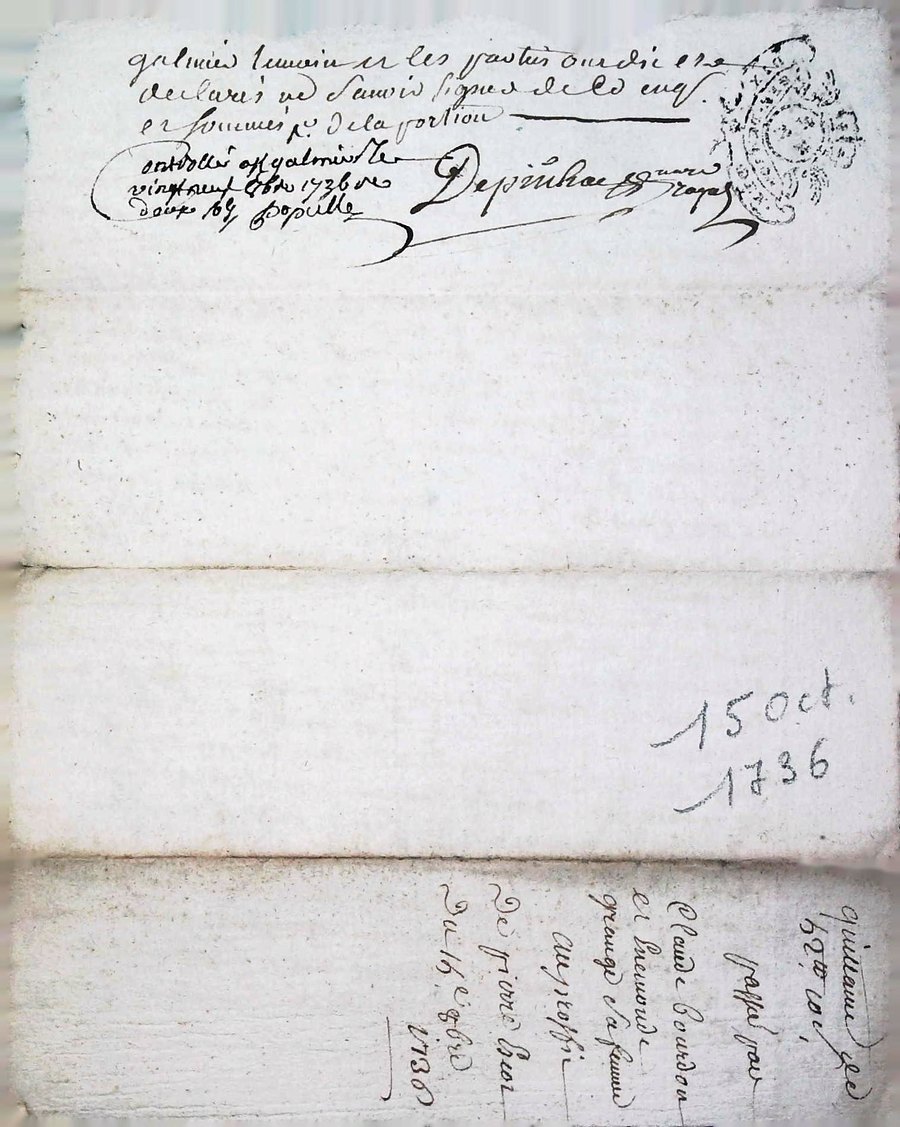 galmier temoin et les parties ont dit et
declarés ne scavoir signer de ce enq.
et sommés p. de la portion
controllé a St galmier le
vingt neuf 8bre 1736 re
deux sols populle
Depinhac
royal
15 Oct.
1736
quittance de
52 tt 10 s,
passé par
Claude bourdon
et Enemonde
grange sa femme
au proffit
De pierre
Du 15e 8bre
1736